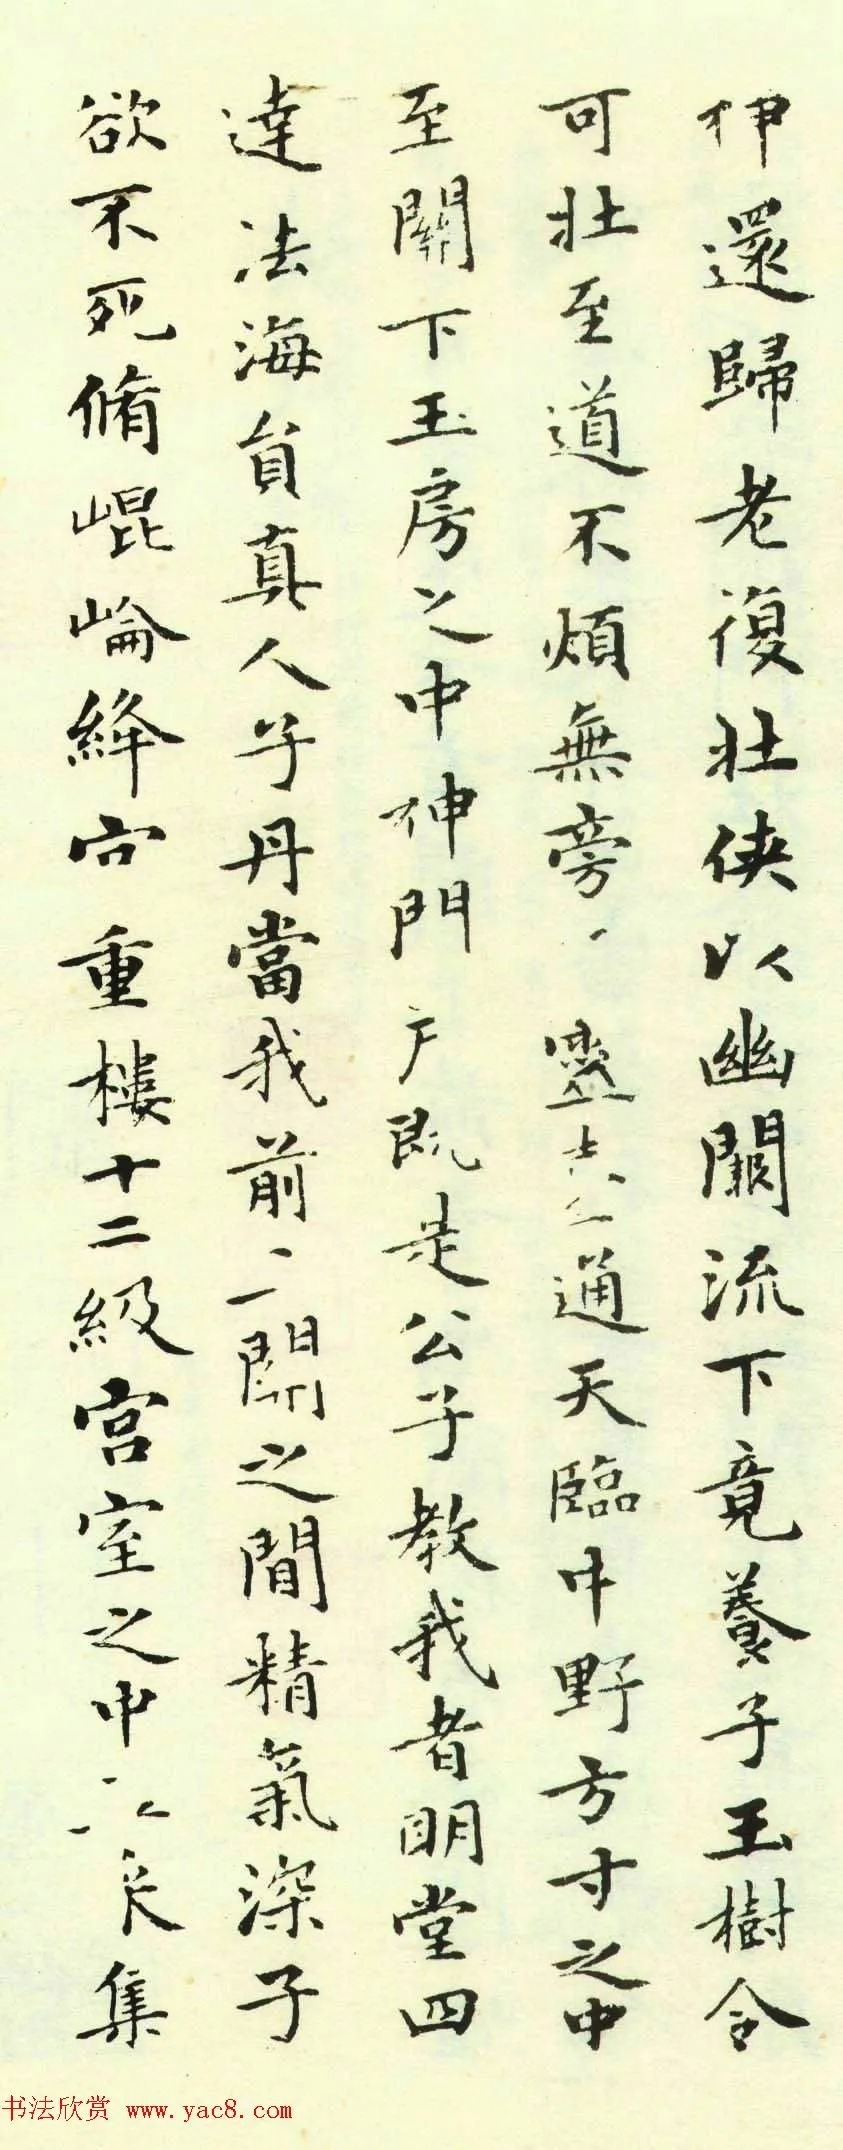 伊還歸老復壯俠以幽闕流下竟養子玉樹令
可壯至道不煩無旁 靈 通天臨中野方寸之中
至關下玉房之中神門戶既是公子教我者明堂四
達法海員真人子丹當我前二關之間精氣深子
欲不死脩崐崘絳宫重樓十二級宫室之中 集
书法欣赏 www.yac8.com